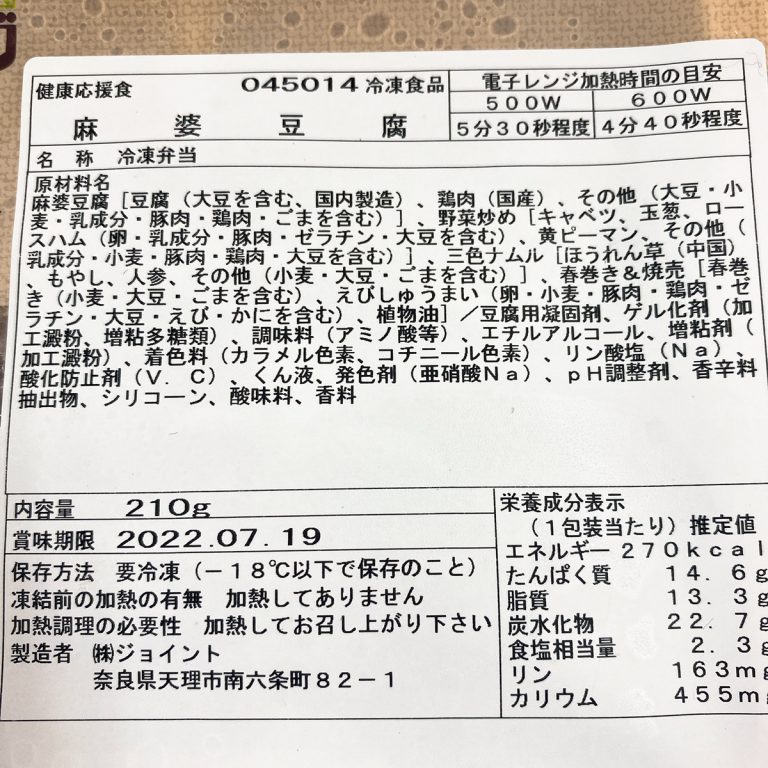 健康応援食 045014 冷凍食品
電子レンジ加熱時間の目安
500W 600W
麻婆豆腐
5分30秒程度 4分40秒程度
名称 冷凍弁当
原材料名
麻婆豆腐［豆腐（大豆を含む、国内製造）、鶏肉（国産）、その他（大豆・小
麦・乳成分・豚肉・鶏肉・ごまを含む）］、野菜炒め［キャベツ、玉葱、ロー
スハム（卵・乳成分・豚肉・ゼラチン・大豆を含む）、黄ピーマン、その他（
乳成分・小麦・豚肉・鶏肉・大豆を含む）］、三色ナムル［ほうれん草（中国）
、もやし、人参、その他（小麦・大豆・ごまを含む）］、春巻き＆焼売［春巻
き（小麦・大豆・ごまを含む）、えびしゅうまい（卵・小麦・豚肉・鶏肉・ゼ
ラチン・大豆・えび・かにを含む）、植物油］／豆腐用凝固剤、ゲル化剤（加
工澱粉、増粘多糖類）、調味料（アミノ酸等）、エチルアルコール、増粘剤（
加工澱粉）、着色料（カラメル色素、コチニール色素）、リン酸塩（Ｎａ）、
酸化防止剤（Ｖ．Ｃ）、くん液、発色剤（亜硝酸Ｎａ）、ｐＨ調整剤、香辛料
抽出物、シリコーン、酸味料、香料
内容量 210g
賞味期限 2022.07.19
保存方法 要冷凍（－１８℃以下で保存のこと）
凍結前の加熱の有無 加熱してありません
加熱調理の必要性 加熱してお召し上がり下さい
製造者 ㈱ジョイント
奈良県天理市南六条町８２－１
栄養成分表示
（１包装当たり）推定値
エネルギー ２７０ｋｃａｌ
たんぱく質 １４．６ｇ
脂質 １３．３ｇ
炭水化物 ２２．７ｇ
食塩相当量 ２．３ｇ
リン １６３ｍｇ
カリウム ４５５ｍｇ